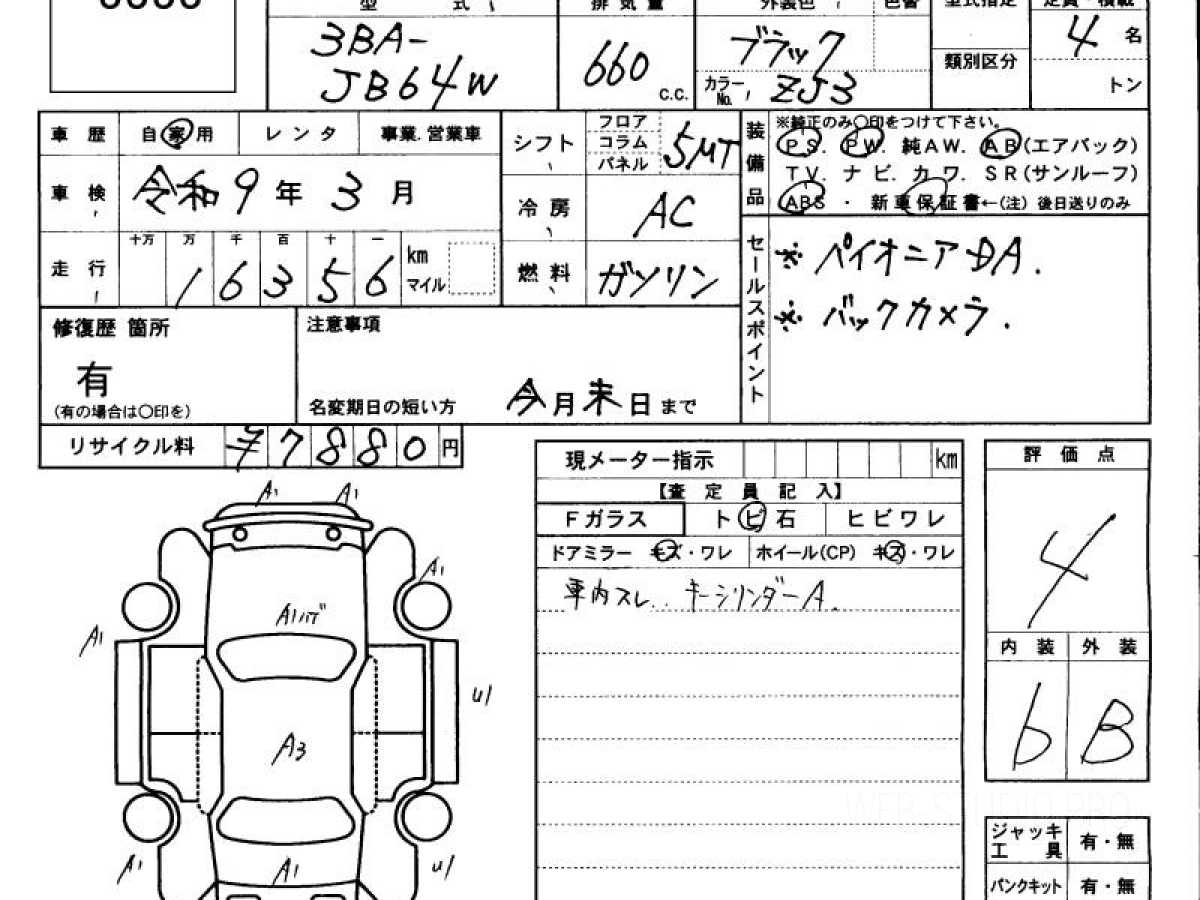 型 式 排気量 外装色 色替 型式指定 定員・積載
3BA-
JB64W
660 c.c.
ブラック
カラーNo. ZJ3
類別区分
4 名
トン
車歴 自家用 レンタ 事業.営業車
シフト フロア コラム パネル 5MT
車検 令和9年3月
冷房 AC
走行 十万 万 千 百 十 一 km マイル
16356
燃料 ガソリン
装備品
※純正のみ○印をつけて下さい。
PS. PW. 純AW. AB(エアバック)
TV. ナビ. カワ. SR(サンルーフ)
ABS ・ 新車保証書←(注) 後日送りのみ
セールスポイント
※ パイオニアDA.
※ バックカメラ.
修復歴 箇所
有
(有の場合は○印を)
注意事項
名変期日の短い方 今月末日まで
リサイクル料 7880円
現メーター指示 km
【査定員記入】
Fガラス トビ石 ヒビワレ
ドアミラー キズ・ワレ ホイール(CP) キズ・ワレ
車内スレ.. キーシリンダーA.
評価点
4
内装 外装
b B
A1 A1
A1
A1
A1
U1
A3
A1
A1
U1
WEB STUDIO PRO
ジャッキ 有・無
工具
パンクキット 有・無